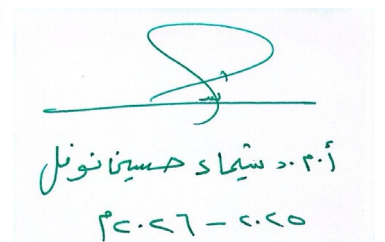 أ.م.د شيماء حسين نوفل
٢٠٢٥ - ٢٠٢٦م